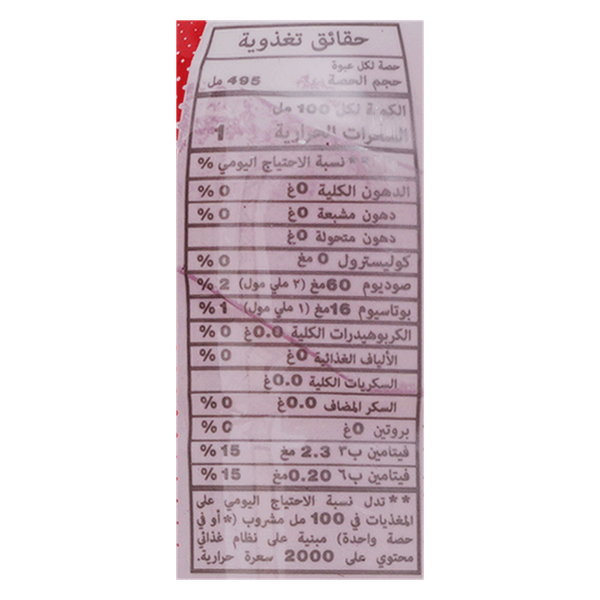 حقائق تغذوية
حصة لكل عبوة
حجم الحصة 495 مل
الكمية لكل 100 مل
السعرات الحرارية 1
** نسبة الاحتياج اليومي %
الدهون الكلية 0غ 0 %
دهون مشبعة 0غ 0 %
دهون متحولة 0غ
كوليسترول 0 مغ 0 %
صوديوم 60مغ (٢ ملي مول) 2 %
بوتاسيوم 16مغ (١ ملي مول) 1 %
الكربوهيدرات الكلية 0.0غ 0 %
الألياف الغذائية 0غ 0 %
السكريات الكلية 0.0غ
السكر المضاف 0.0غ 0 %
بروتين 0غ 0 %
فيتامين ب٣ 2.3 مغ 15 %
فيتامين ب٦ 0.20مغ 15 %
** تدل نسبة الاحتياج اليومي على
المغذيات في 100 مل مشروب (*أو في
حصة واحدة) مبنية على نظام غذائي
محتوي على 2000 سعرة حرارية.